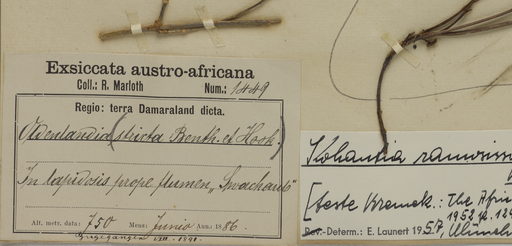 Exsiccata austro-africana
Coll.: R. Marloth Num.: 1449
Regio: terra Damaraland dicta.
Oldenlandia (stricta Benth. et Hook.)
In lapidosis prope flumen "Swachaub"
Alt. metr. data: 750 Mens: Junio Ann.: 1886.
Eingegangen VIII. 1891.
Kohautia ramosiss
[teste Bremek.: The Afri
1952 p. 12
Rev.-Determ.: E. Launert 1957, München